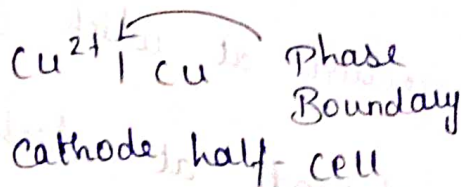 Cu²⁺ | Cu Phase
Boundary
Cathode half-cell